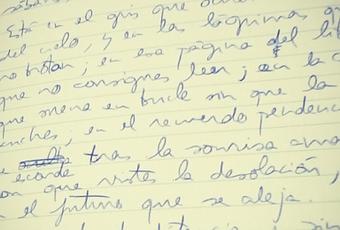 Está en el gris que
del cielo, y en las lágrimas q
no brotan; en esa página del lib
que no consigues leer; en la c
que suena en bucle sin que la
enches; en el recuerdo pendenc
e esconde tras la sonrisa ama
on que vistes la desolación,
el futuro que se aleja.